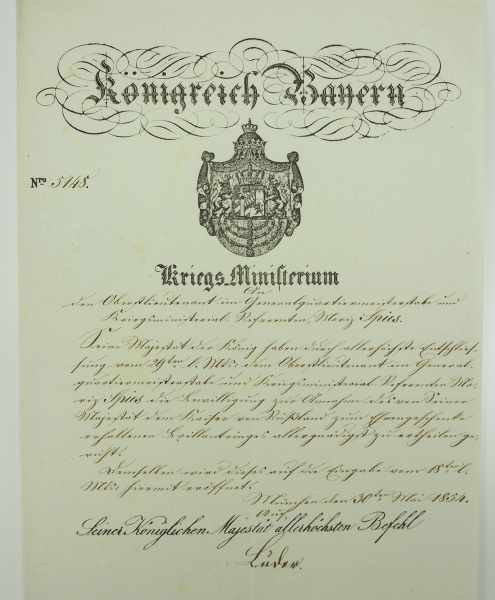 Königreich Bayern
Nro 5148.
Kriegs-Ministerium
An
den Oberstlieutenant im Generalquartiermeisterstabe und
Kriegsministerial-Referenten, Moriz Spies.
Seine Majestät der König haben durch allerhöchste Entschlies-
sung vom 29ten l. Mts. dem Oberstlieutenant im General-
quartiermeisterstabe und Kriegsministerial-Referenten Mo-
riz Spies die Bewilligung zur Annahme des von Seiner
Majestät dem Kaiser von Rußland zum Ehrengeschenke
erhaltenen Brillantringes allergnädigst zu ertheilen ge-
ruht.
Demselben wird dieses auf die Eingabe vom 18ten l.
Mts. hiermit eröffnet.
München den 30ten Mai 1854.
Auf
Seiner Königlichen Majestät allerhöchsten Befehl
Lüder.